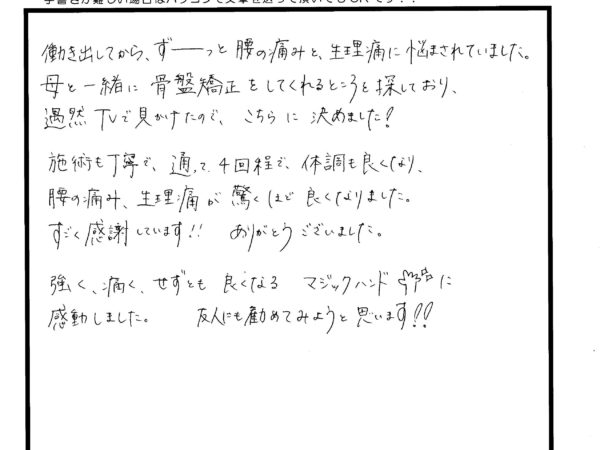 手書きが難しい場合はパソコンで文章を送って頂いてもOKです！！
働き出してから、ずーーっと 腰の痛みと、生理痛に悩まされていました。
母と一緒に 骨盤矯正をしてくれるところを探しており、
遇然 TVで見かけたので、こちらに 決めました！
施術も丁寧で、通って4回程で、体調も良くなり、
腰の痛み、生理痛が驚くほど良くなりました。
すごく感謝しています！！ ありがとうございました。
強く、痛く、せずとも 良くなる マジックハンド に
感動しました。 友人にも勧めてみようと思います！！